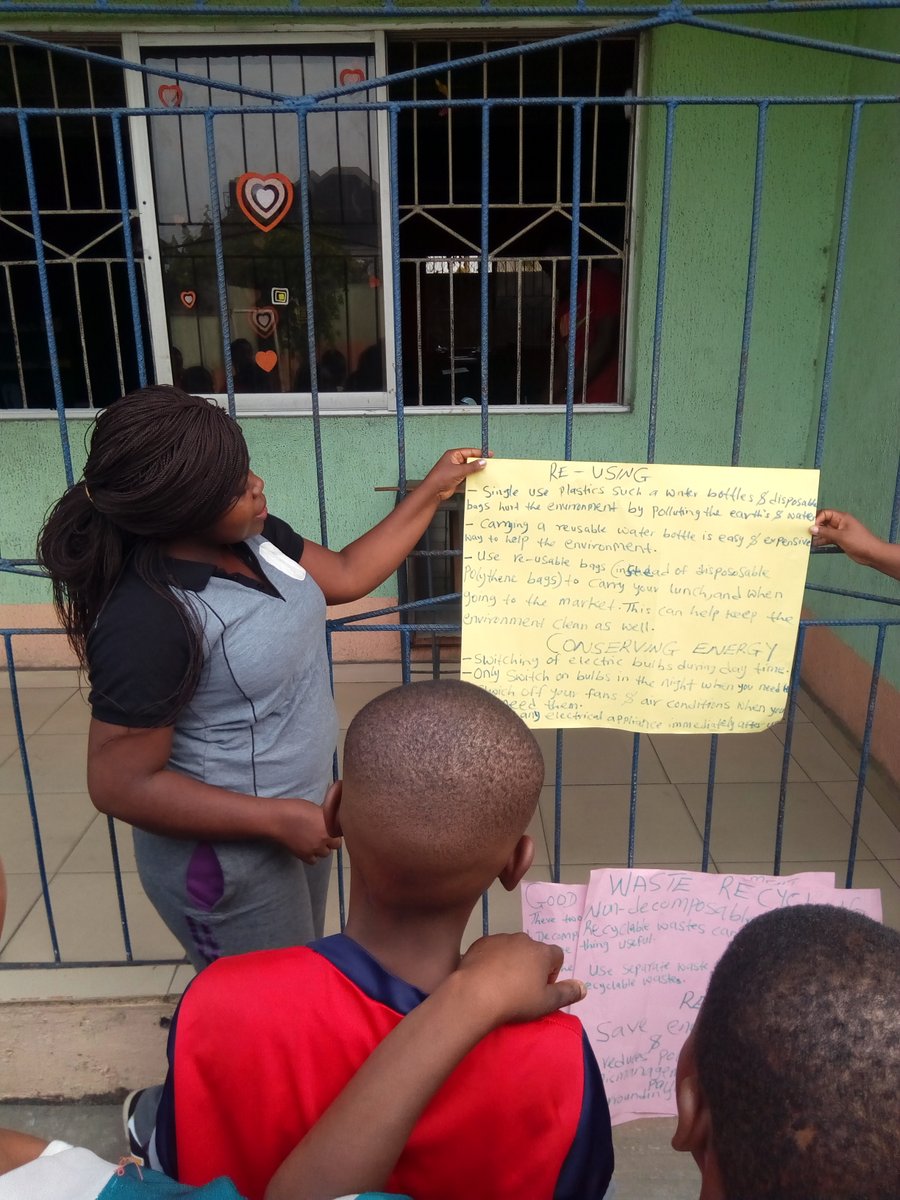 RE-USING
- Single use plastics such a water bottles & disposable
bags hurt the environment by polluting the earth's & water
- Carrying a reusable water bottle is easy & expensive
way to help the environment.
- Use re-usable bags (instead of disposable
Polythene bags) to carry your lunch, and when
going to the market. This can help keep the
environment clean as well.
CONSERVING ENERGY
- Switching of electric bulbs during day time.
- Only switch on bulbs in the night when you need
off your fans & air conditions when you
need them.
any electrical appliance immediately after
GOOD
There two
WASTE RECYCLING
Non-decomposable
Recyclable wastes can
thing useful.
Use separate waste
recyclable wastes.
Save
&
reduces